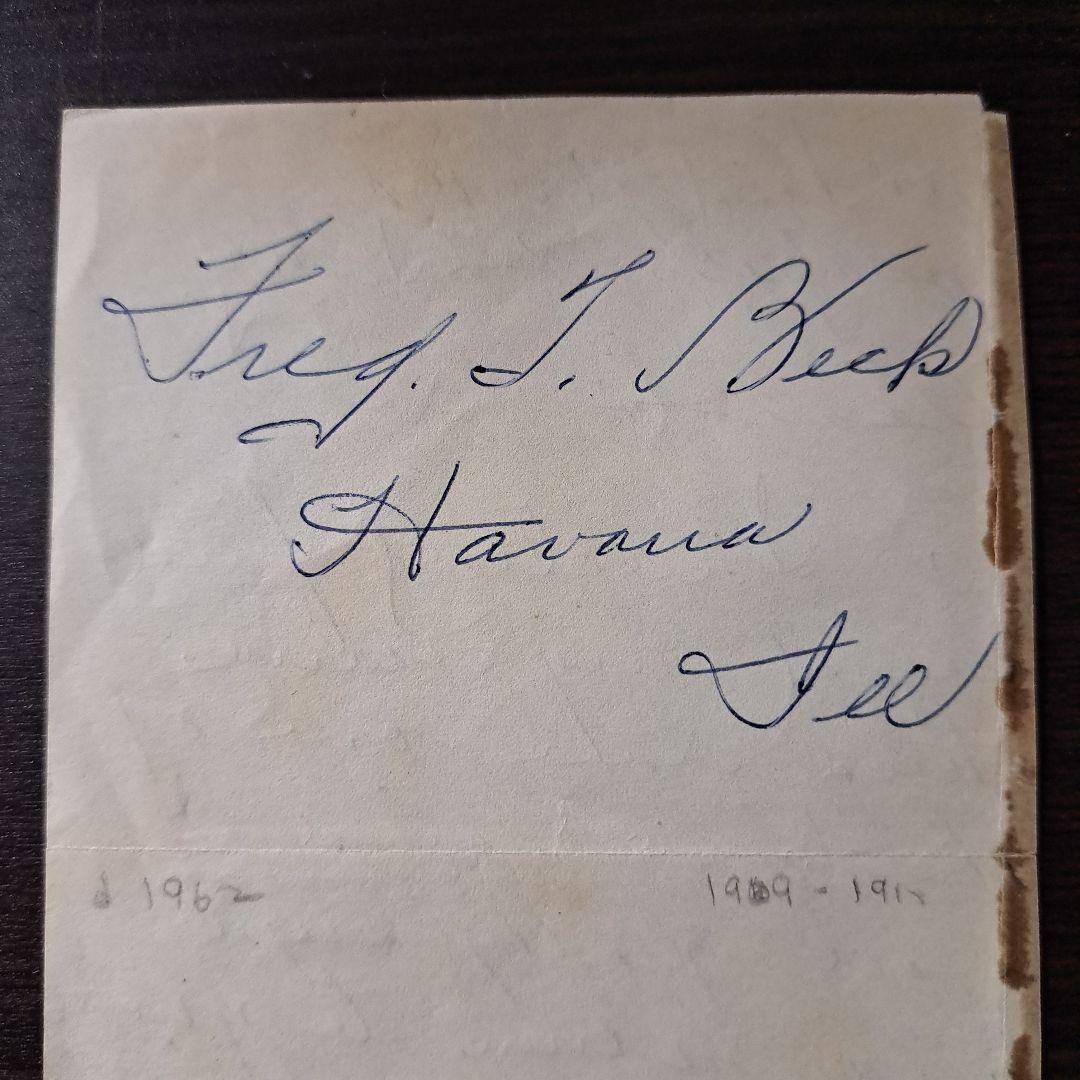 Fred. T. Beck
Havana
Ill
d 1962 1909 - 191